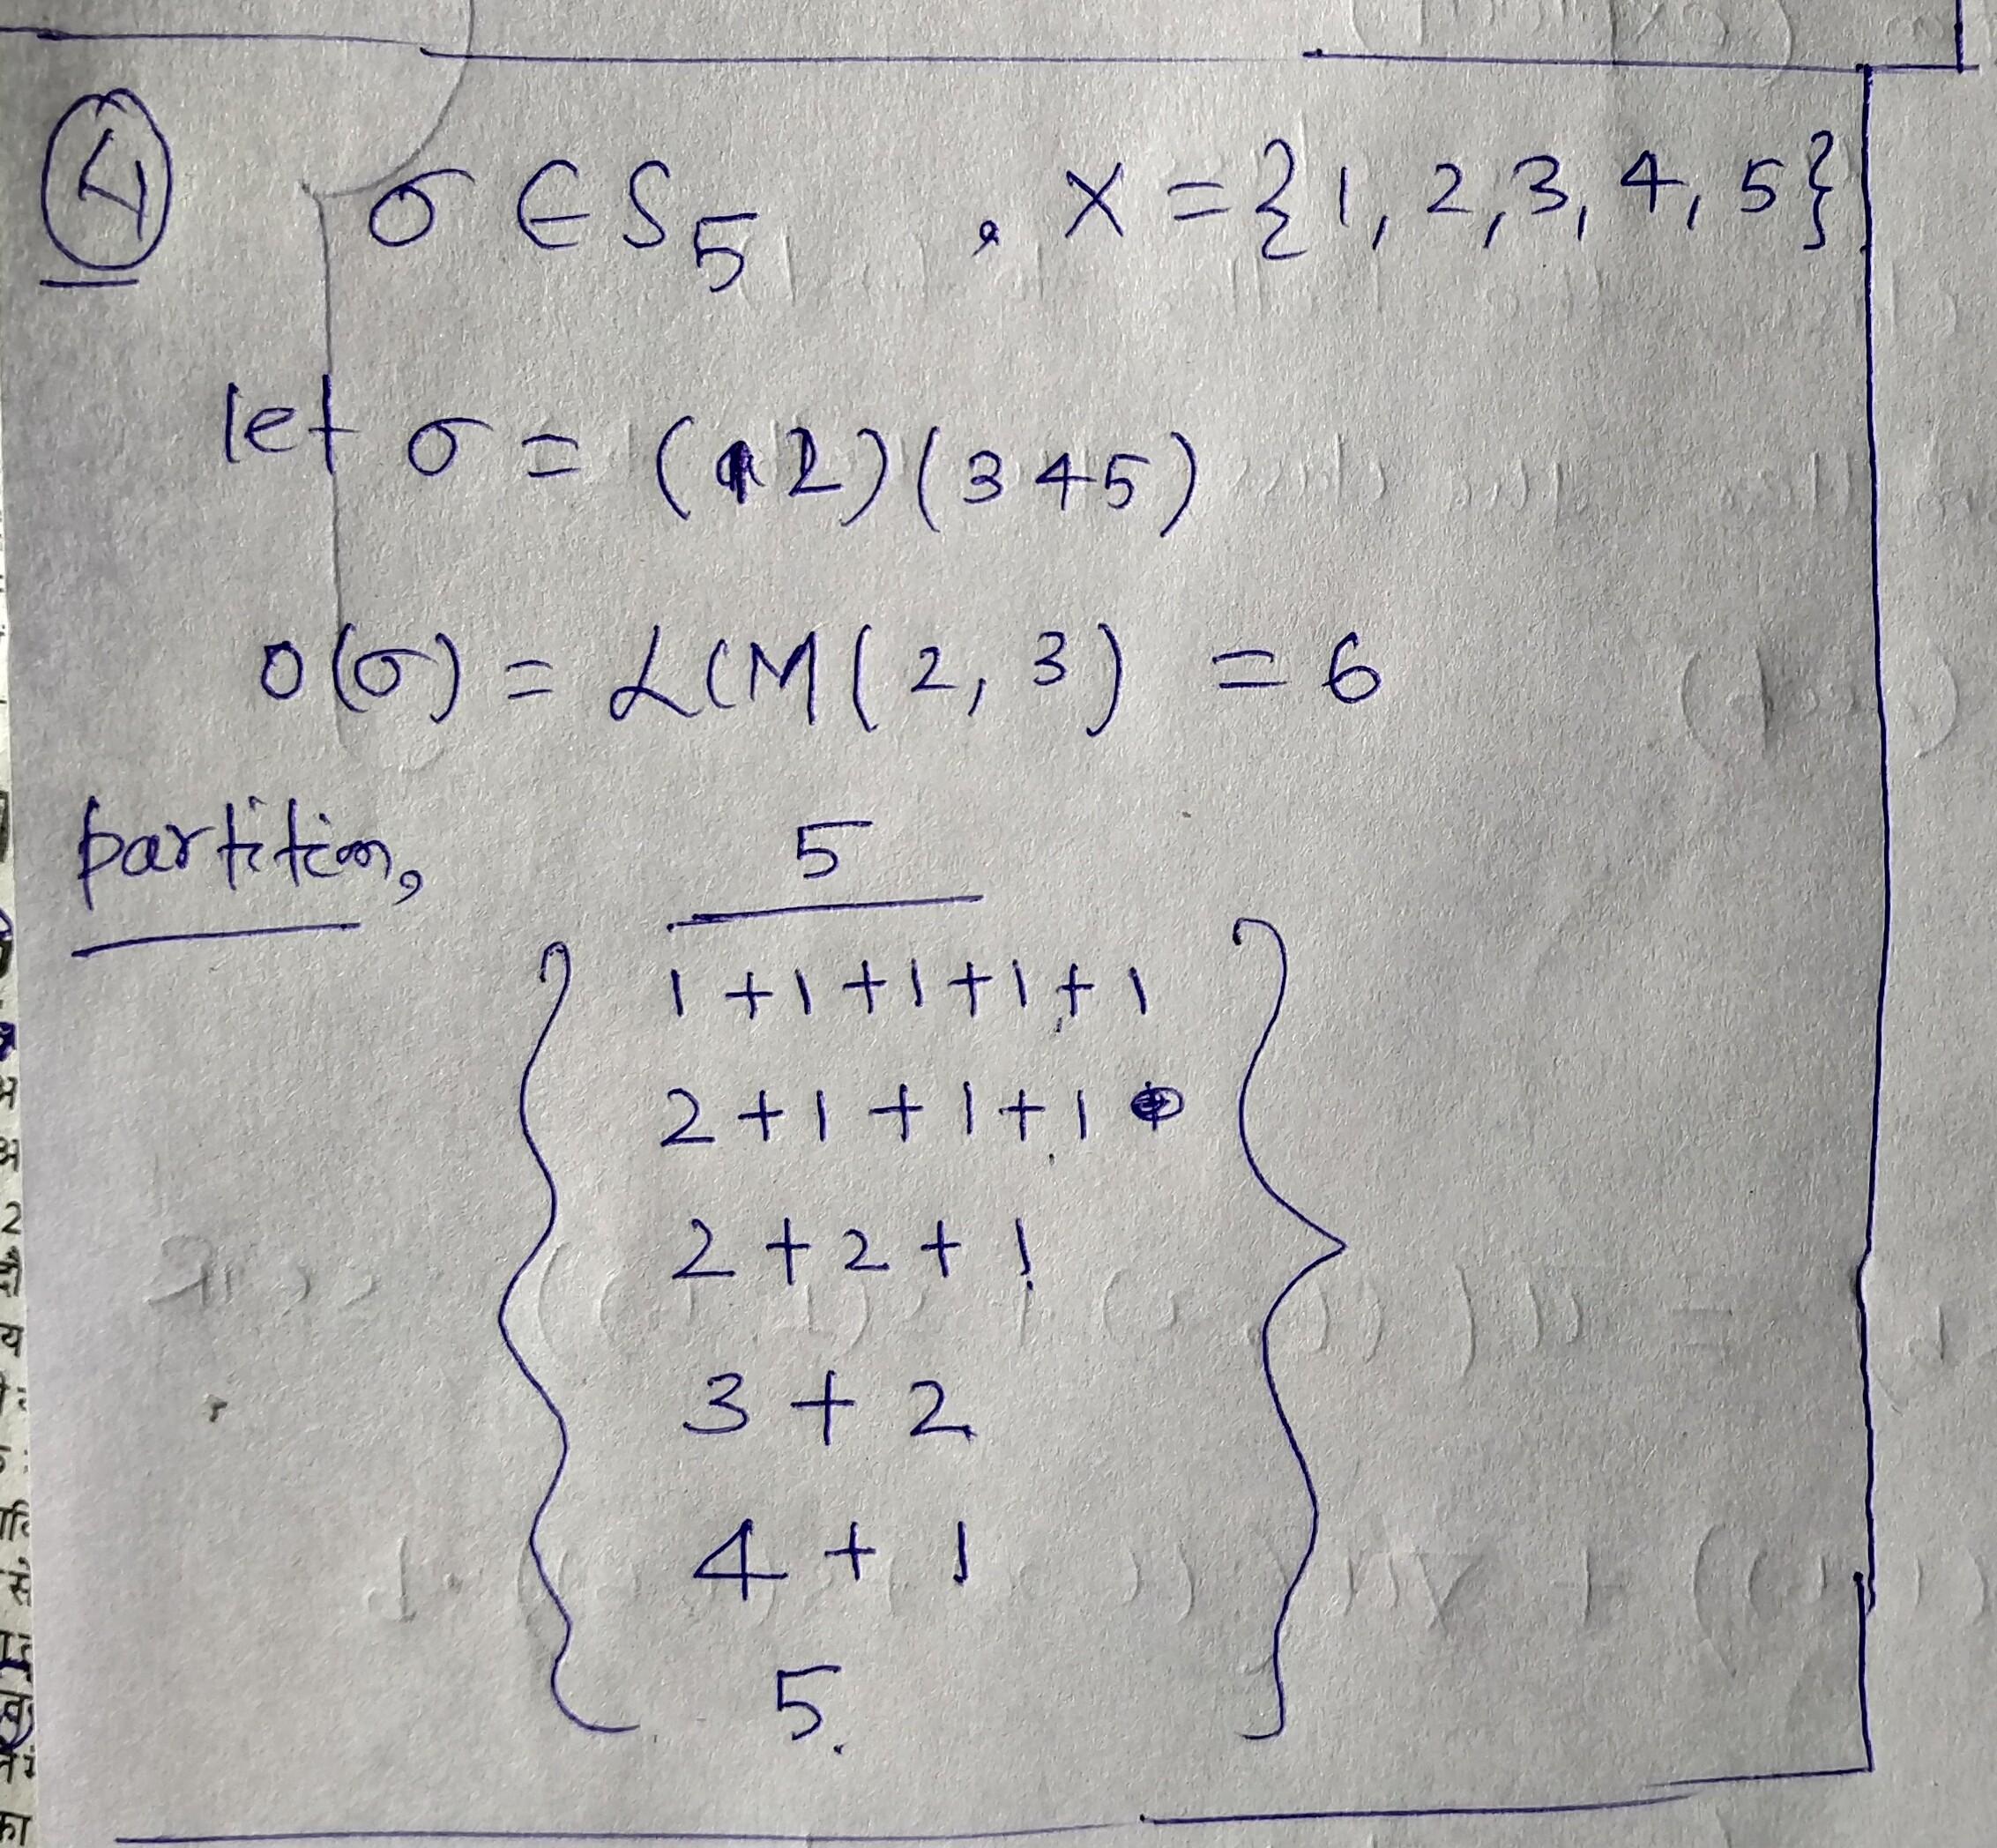 4 σ ∈ S5 , X = {1, 2, 3, 4, 5}
let σ = (12)(345)
o(σ) = LCM(2, 3) = 6
partition, 5
1+1+1+1+1
2+1+1+1
2+2+1
3+2
4+1
5.